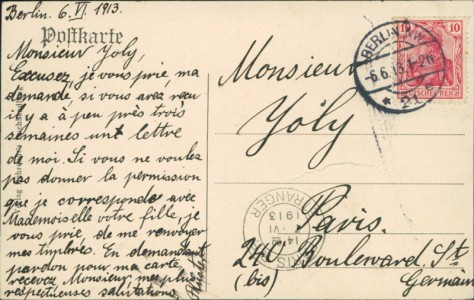 Berlin. 6. VI. 1913.
Postkarte
Monsieur Yoly,
Excusez, je vous prie, ma
demande, si vous avez reçu
il y a à peu près trois
semaines une lettre
de moi. Si vous ne voulez
pas donner la permission
que je corresponde avec
Mademoiselle votre fille, je
vous prie, de me renvoyer
mes timbres. En demandant
pardon pour ma carte
recevez, Monsieur, mes plus
respectueuses salutations
Monsieur
Yoly
Paris.
240 Boulevard St.
(bis) Germain
BERLIN N.W.
6.6.13.1-2N.
* 21
10
DEUTSCHES REICH
PARIS
ETRANGER
VI
1913